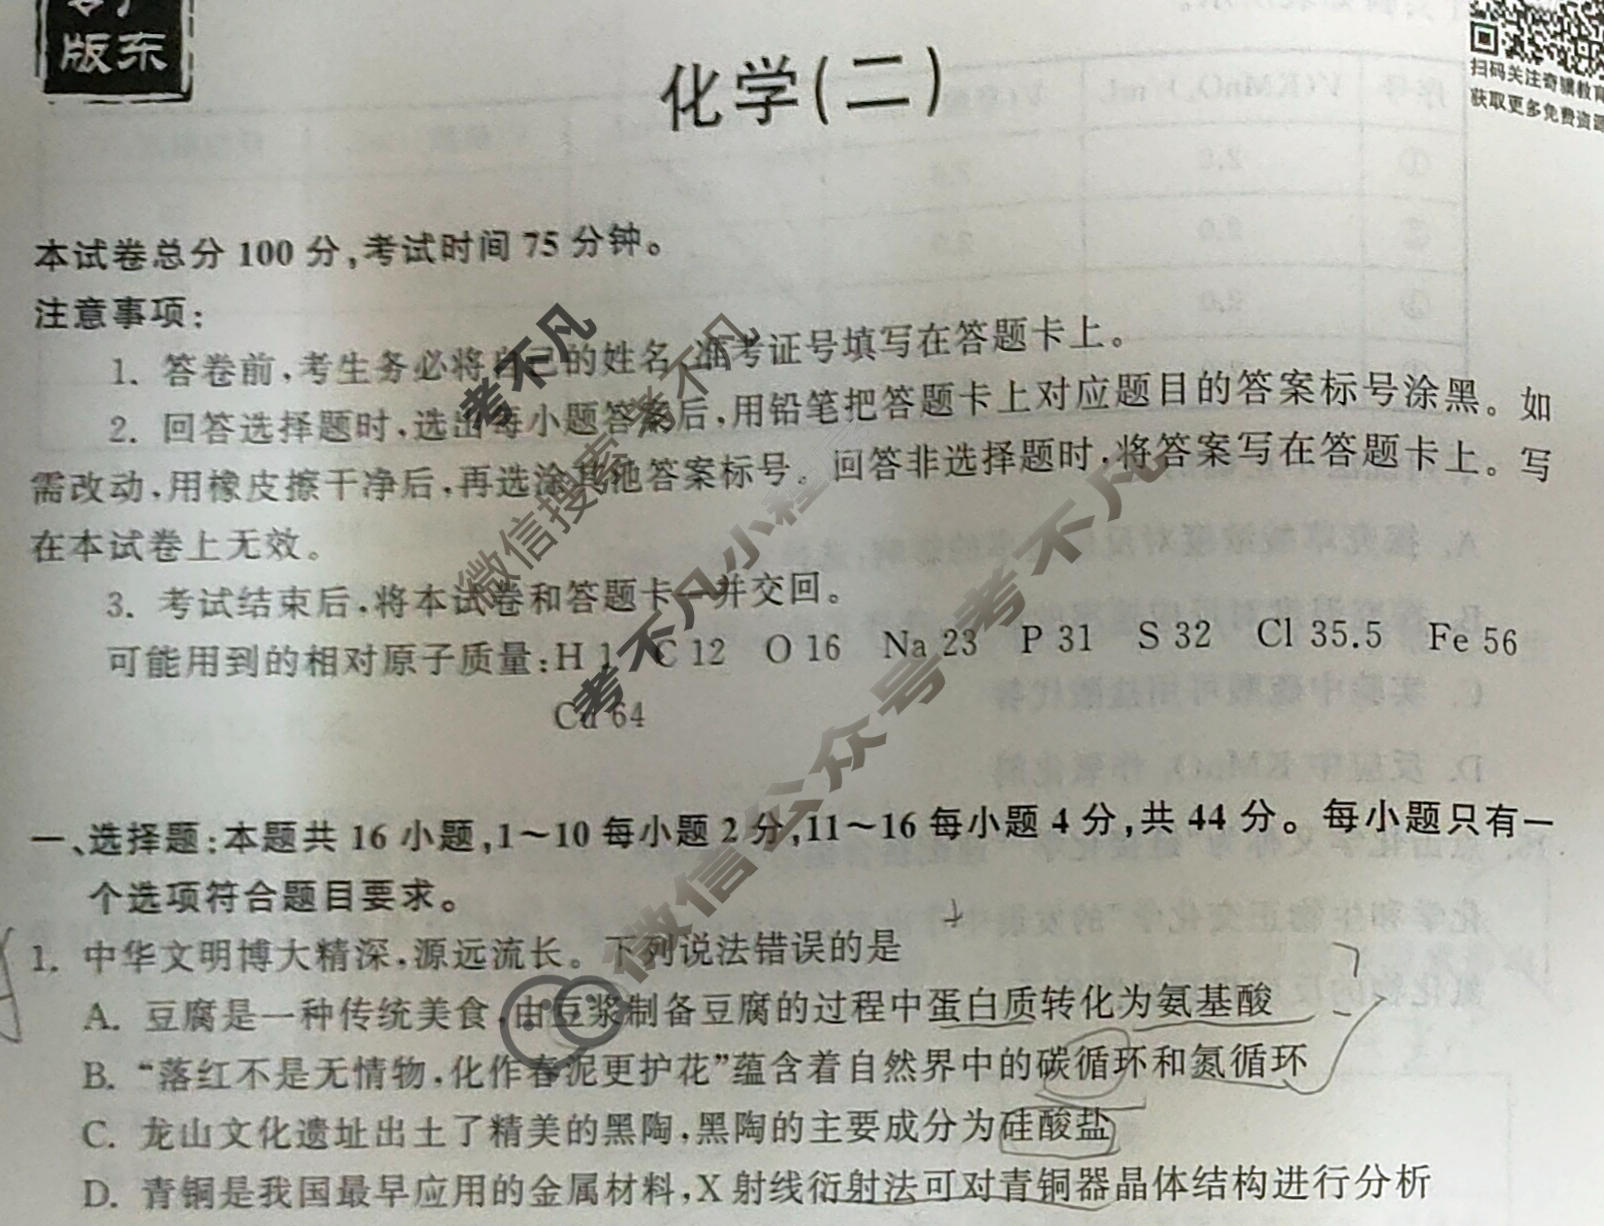 版东
化学(二)
扫码关注奇骥教育
获取更多免费资源
本试卷总分100分,考试时间75分钟。
注意事项:
1. 答卷前,考生务必将自己的姓名、准考证号填写在答题卡上。
2. 回答选择题时,选出每小题答案后,用铅笔把答题卡上对应题目的答案标号涂黑。如
需改动,用橡皮擦干净后,再选涂其他答案标号。回答非选择题时,将答案写在答题卡上。写
在本试卷上无效。
3. 考试结束后,将本试卷和答题卡一并交回。
可能用到的相对原子质量:H 1 C 12 O 16 Na 23 P 31 S 32 Cl 35.5 Fe 56
Cu 64
一、选择题:本题共16小题,1~10每小题2分,11~16每小题4分,共44分。每小题只有一
个选项符合题目要求。
1. 中华文明博大精深,源远流长。下列说法错误的是
A. 豆腐是一种传统美食,由豆浆制备豆腐的过程中蛋白质转化为氨基酸
B. “落红不是无情物,化作春泥更护花”蕴含着自然界中的碳循环和氮循环
C. 龙山文化遗址出土了精美的黑陶,黑陶的主要成分为硅酸盐
D. 青铜是我国最早应用的金属材料,X射线衍射法可对青铜器晶体结构进行分析
考不凡
微信搜索 考不凡
考不凡小程序
微信公众号 考不凡